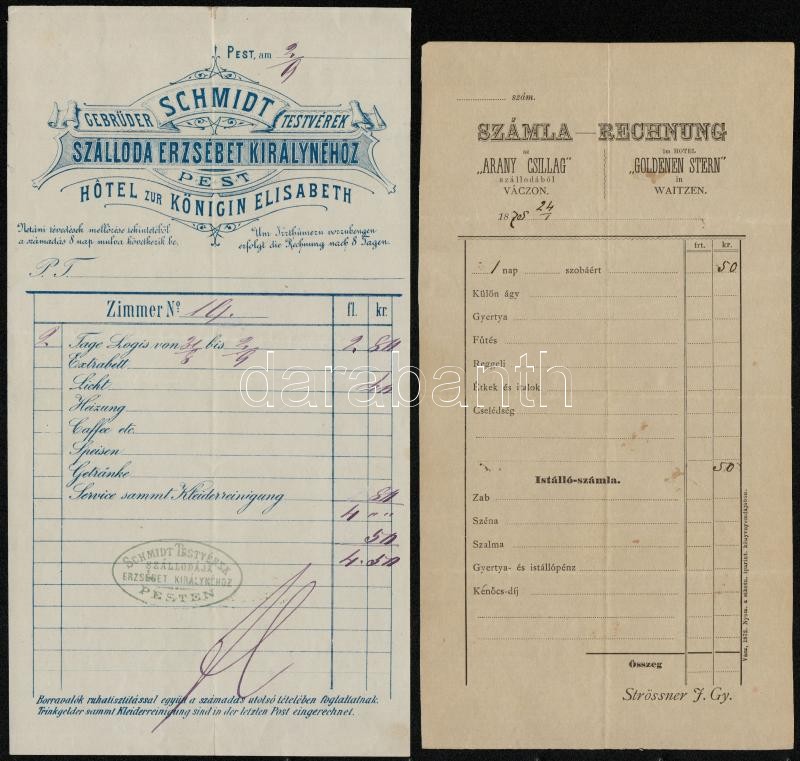 Pest, am 2/9
GEBRÜDER SCHMIDT TESTVÉREK
SZÁLLODA ERZSÉBET KIRÁLYNÉHOZ
PEST
HÔTEL ZUR KÖNIGIN ELISABETH
Netáni tévedések mellőzése tekintetéből
a számadás 8 nap mulva következik be.
Um Irrthümern vorzubeugen
erfolgt die Rechnung nach 8 Tagen.
P. T.
Zimmer No 19. fl. kr.
2 Tage Logis von 31/8 bis 2/9 2. 50
Extrabett
Licht 50
Heizung
Caffee etc.
Speisen
Getränke
Service sammt Kleiderreinigung 50
4 " "
50
4. 50
SCHMIDT TESTVÉREK
SZÁLLODÁJA
ERZSÉBET KIRÁLYNÉHOZ
PESTEN
Borravalók ruhatisztitással együtt a számadás utolsó tételében foglaltatnak.
Trinkgelder sammt Kleiderreinigung sind in der letzten Post eingerechnet.
szám.
SZÁMLA — RECHNUNG
az
„ARANY CSILLAG"
szállodából
VÁCZON.
im HOTEL
„GOLDENEN STERN"
in
WAITZEN.
1875 24/1
frt. kr.
1 nap szobáért 50
Külön ágy
Gyertya
Fűtés
Reggeli
Étkek és italok
Cselédség
50
Istálló-számla.
Zab
Széna
Szalma
Gyertya- és istállópénz
Kenőcs-díj
Összeg
Strössner J. Gy.
darabanth